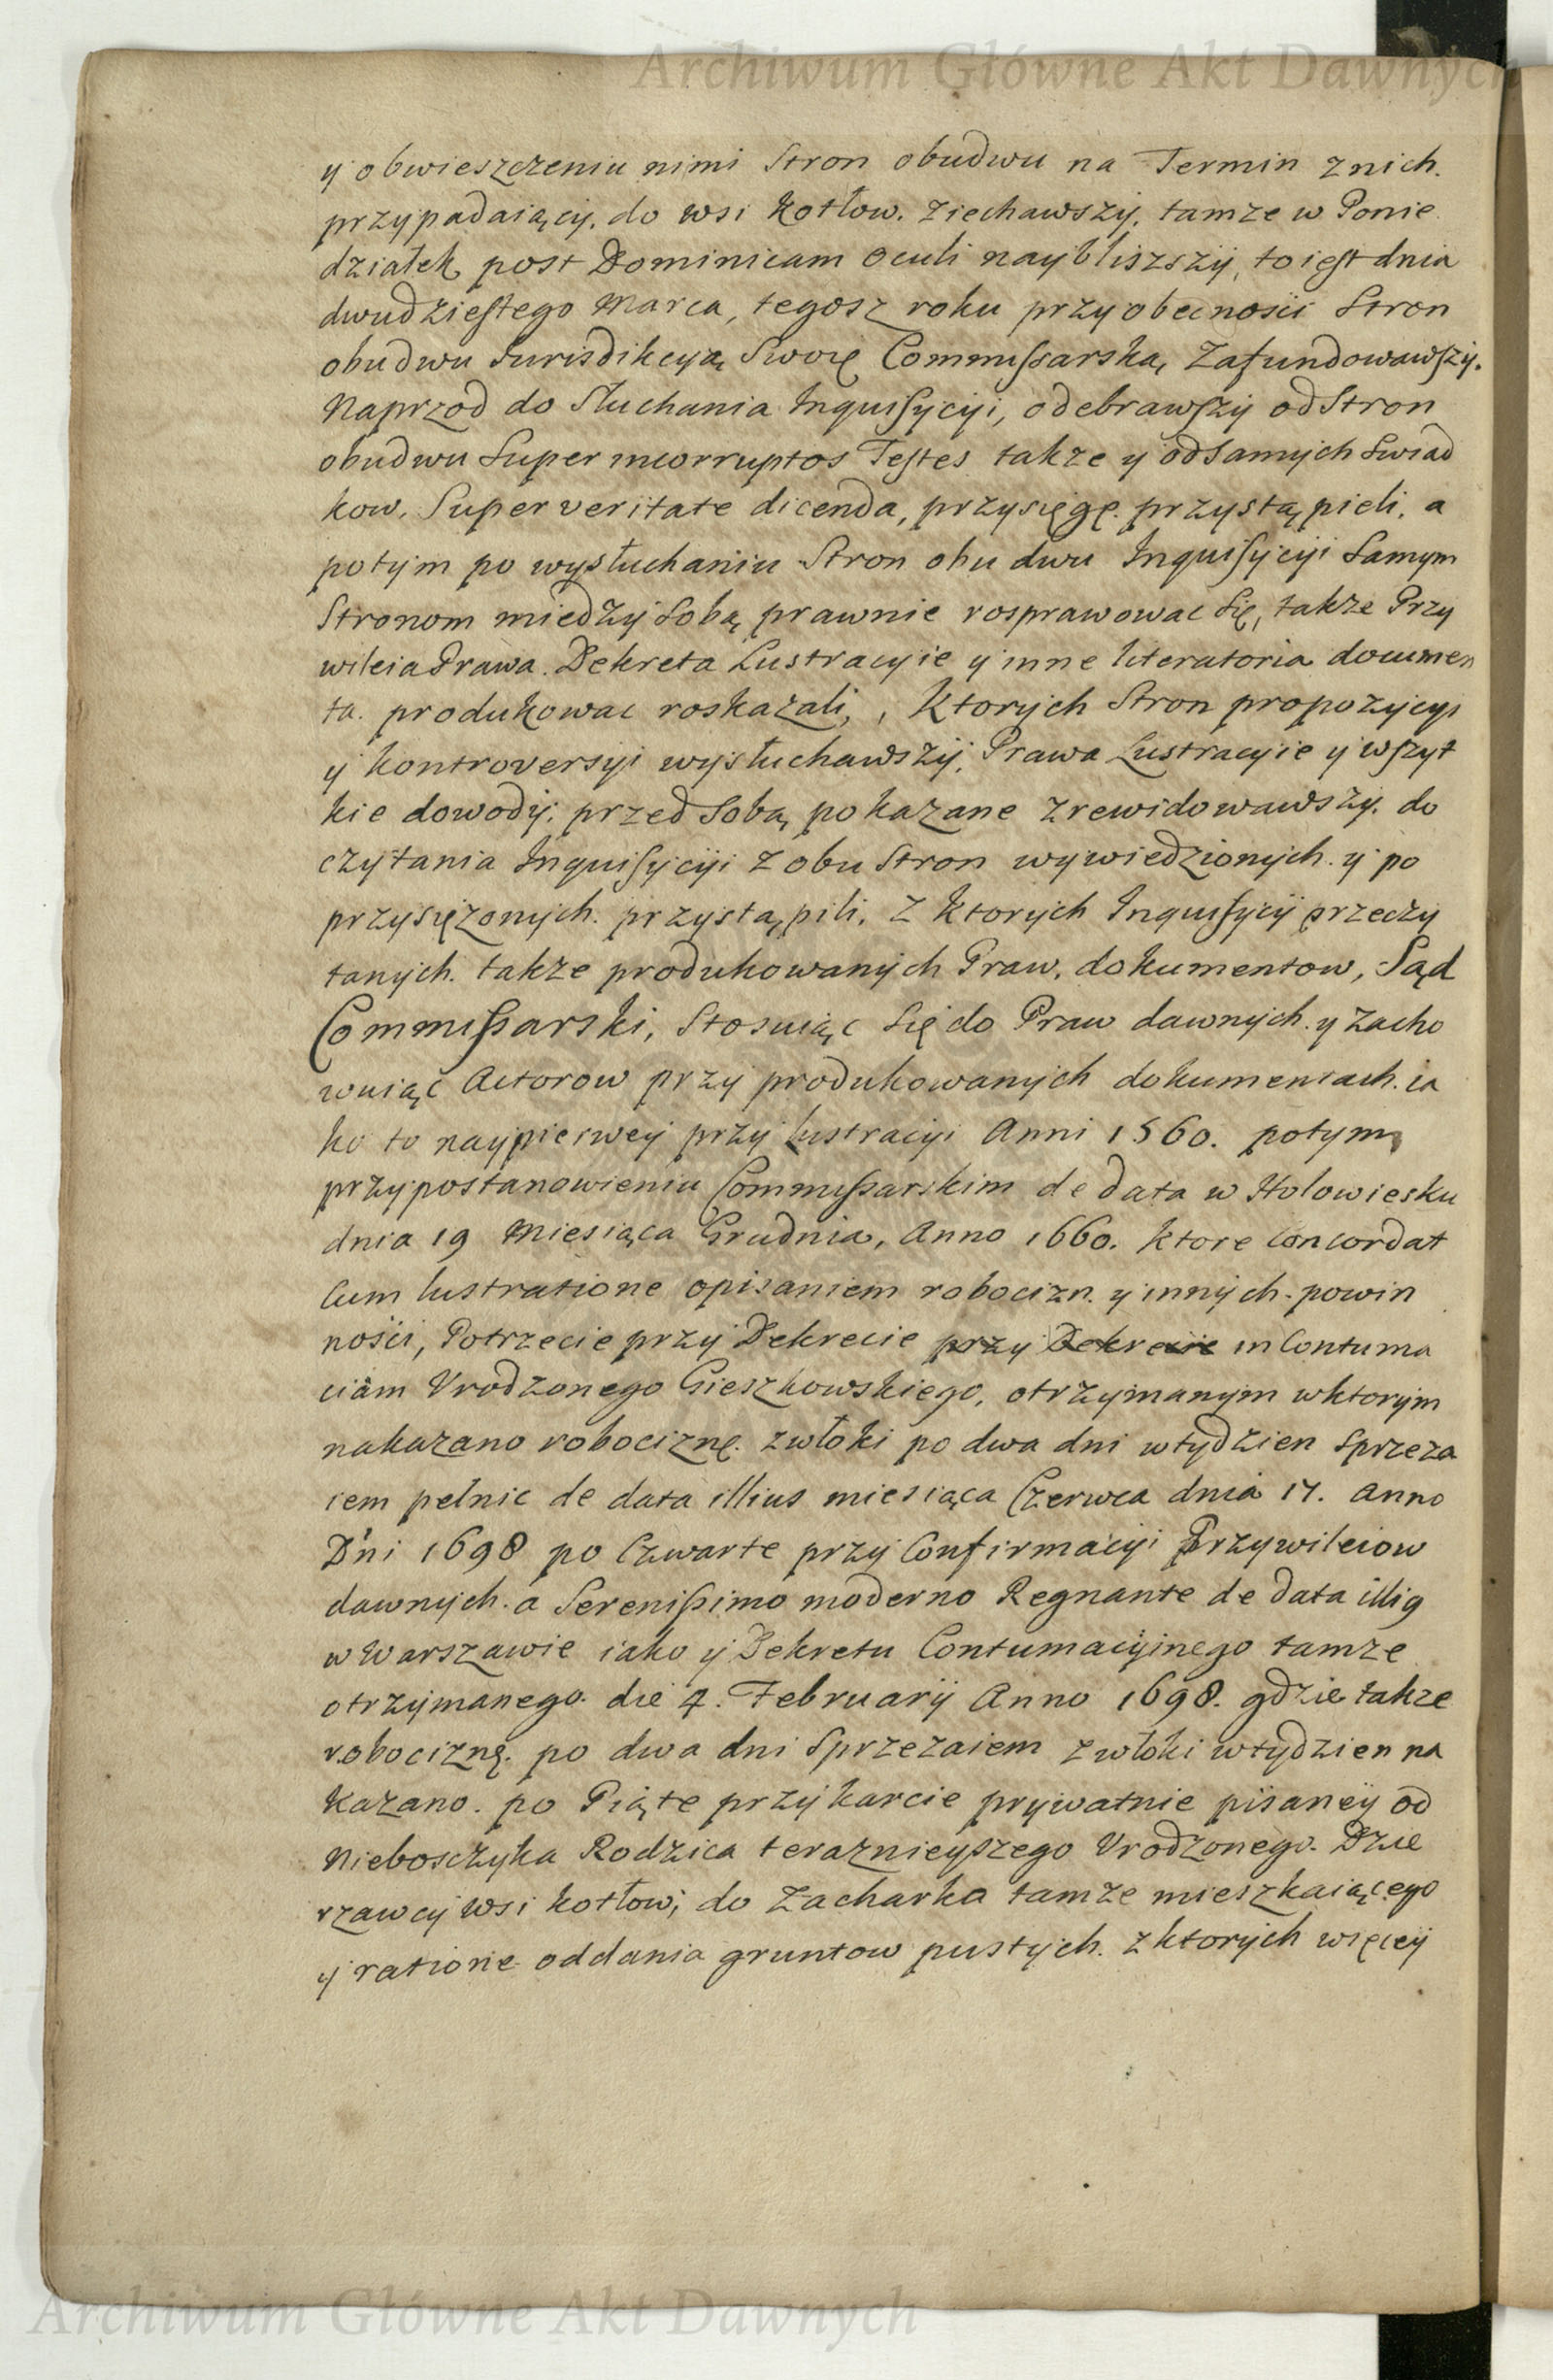 Archiwum Główne Akt Dawnych
y obwieszczeniu nimi Stron obudwu na Termin z nich.
przypadaiącÿ. do wsi Kotłow. Ziechawszÿ, tamze w Ponie
działek post Dominicam Oculi naÿbliszszÿ, to iest dnia
dwudziestego Marca, tegosz roku przy obecnosci Stron
obudwu Jurisdikcyią Swoię Commissarską, Zafundowawszÿ.
Naprzod do Słuchania Inquisyciyi, odebrawszÿ od Stron
obudwu Super incorruptos Testes takze y od Samych Swiad
kow, Super veritate dicenda, przysięgę. przystąpieli, a
potÿm po wysłuchaniu Stron obu dwu Inquisyciyi Samym
Stronom miedzÿ Sobą prawnie rosprawowac Się, takze Przy
wileia Prawa. Dekreta Lustracyie ÿ inne literatoria documen
ta. produkowac roskazali, , Ktorÿch Stron propozÿcyi
ÿ kontroversÿi wysłuchawszÿ, Prawa Lustracyie ÿ wszyt
kie dowodÿ. przed Sobą pokazane zrewidowawszÿ. do
czÿtania Inquisyciyi z obu Stron wywiedzionÿch. ÿ po
przysięzonÿch. przystąpili. z Ktorÿch Inquisycÿi przeczy
tanÿch. takze produkowanÿch Praw, dokumentow, Sąd
Commissarski, Stosuiąc Się do Praw dawnÿch. y zacho
wuiąc Actorow przÿ produkowanÿch dokumentach. ia
ko to naypierweÿ przÿ lustracÿi Anni 1560. potym
przÿ postanowieniu Commissarskim de data w Holowiesku
dnia 19 Miesiąca Grudnia, Anno 1660. Ktore concordat
Cum lustratione opisaniem robocizn. y innÿch. powin
nosci, Potrzecie przÿ Dekrecie przy Dekrecie in Contuma
ciam Vrodzonego Gieszkowskiego, otrzÿmanÿm w ktorÿm
nakazano robociznę. z włoki po dwa dni w tÿdzien Sprzeza
iem pelnic de data illius miesiąca Czerwca dnia 17. Anno
Dni 1698 po Czwarte przÿ Confirmacÿi Przywileiow
dawnÿch. a Serenissimo moderno Regnante de data illig
w Warszawie iako ÿ Dekretu Contumacÿinego tamze
otrzÿmanego. die 4. Februarÿ Anno 1698. gdzie takze
robociznę. po dwa dni Sprzezaiem z włoki w tÿdzien na
kazano. po Piąte przÿ karcie prÿwatnie pisaneÿ od
Nieboscżyka Rodzica teraznieÿszego Vrodzonego. Dzie
rzawcÿ wsi Kotłow, do Zacharka tamze mieszkaiącego
ÿ ratione oddania gruntow pustÿch. z ktorÿch więceÿ
Archiwum Główne Akt Dawnych